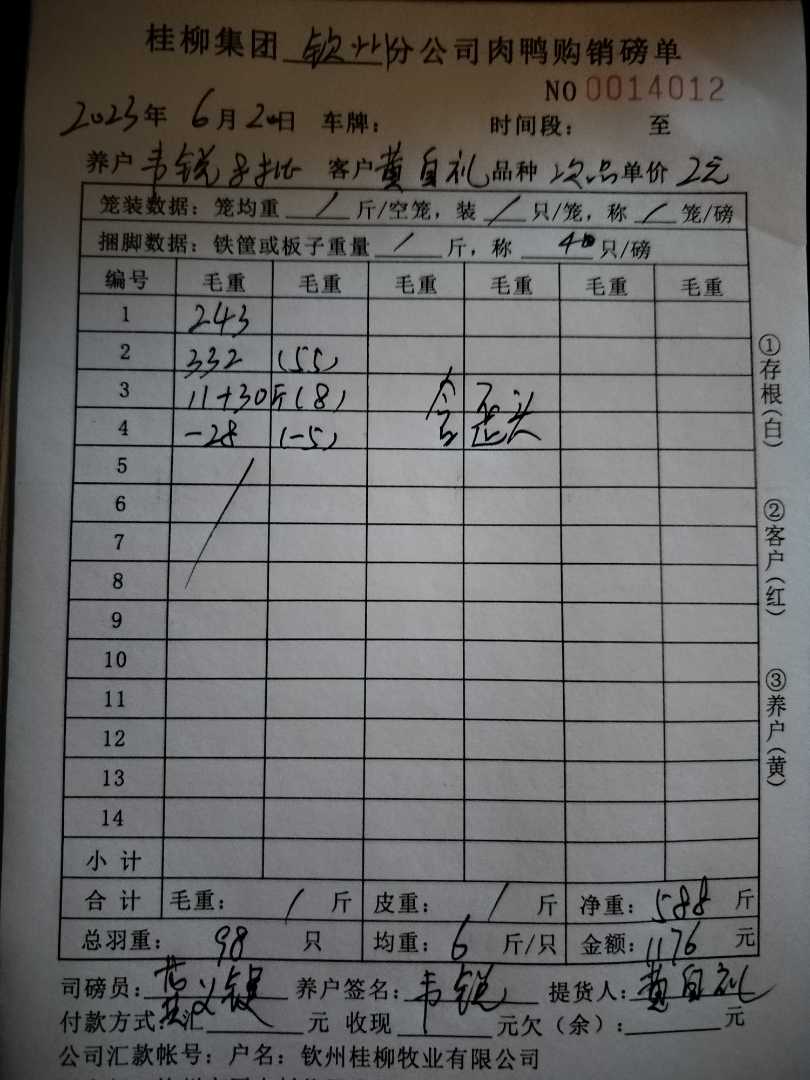 桂柳集团 钦州 分公司肉鸭购销磅单
NO 0014012
2023年 6月 20日 车牌： 时间段： 至
养户 韦锐 客户 黄自礼 品种 次品 单价 2元
笼装数据：笼均重 / 斤/空笼，装 / 只/笼，称 / 笼/磅
捆脚数据：铁筐或板子重量 / 斤，称 40 只/磅
编号 毛重 毛重 毛重 毛重 毛重 毛重
1 243
2 332 (55)
3 11+30斤(8) 含歪头
4 -28 (-5)
5
6
7
8
9
10
11
12
13
14
小 计
合 计 毛重： / 斤 皮重： / 斤 净重：588 斤
总羽重： 98 只 均重：6 斤/只 金额：1176 元
司磅员： 养户签名：韦锐 提货人：黄自礼
付款方式：汇 元 收现 元欠（余）： 元
公司汇款帐号：户名：钦州桂柳牧业有限公司
①存根(白)
②客户(红)
③养户(黄)